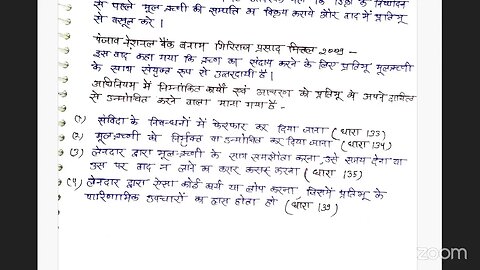 से पहले मूल ऋणी की सम्पति का विक्रय कराये और बाद में प्रतिभू
से वसूल करे।
पंजाब नेशनल बैंक बनाम गिरिराज प्रसाद मित्तल
इस वाद कहा गया कि ऋण का संदाय करने के लिए प्रतिभू मूलऋणी
के साथ संयुक्त रूप से उत्तरदायी है।
अधिनियम में निम्नांकित कार्यो एवं आचरण को प्रतिभू के अपने दायित्व
से उन्मोचित करने वाला माना गया है -
(१) संविदा के निबन्धनों में फेरफार कर दिया जाना (धारा 133)
(२) मूल-ऋणी को निर्मुक्त या उन्मोचित कर दिया जाना (धारा 134)
(३) लेनदार द्वारा मूल-ऋणी के साथ समझौता करना, उसे समय देना या
उस पर वाद न लाने का करार करना (धारा 135)
(४) लेनदार द्वारा ऐसा कोई कार्य या लोप करना जिसमें प्रतिभू के
पारिणामिक उपचारों का ह्रास होता हो (धारा 139)
zoom